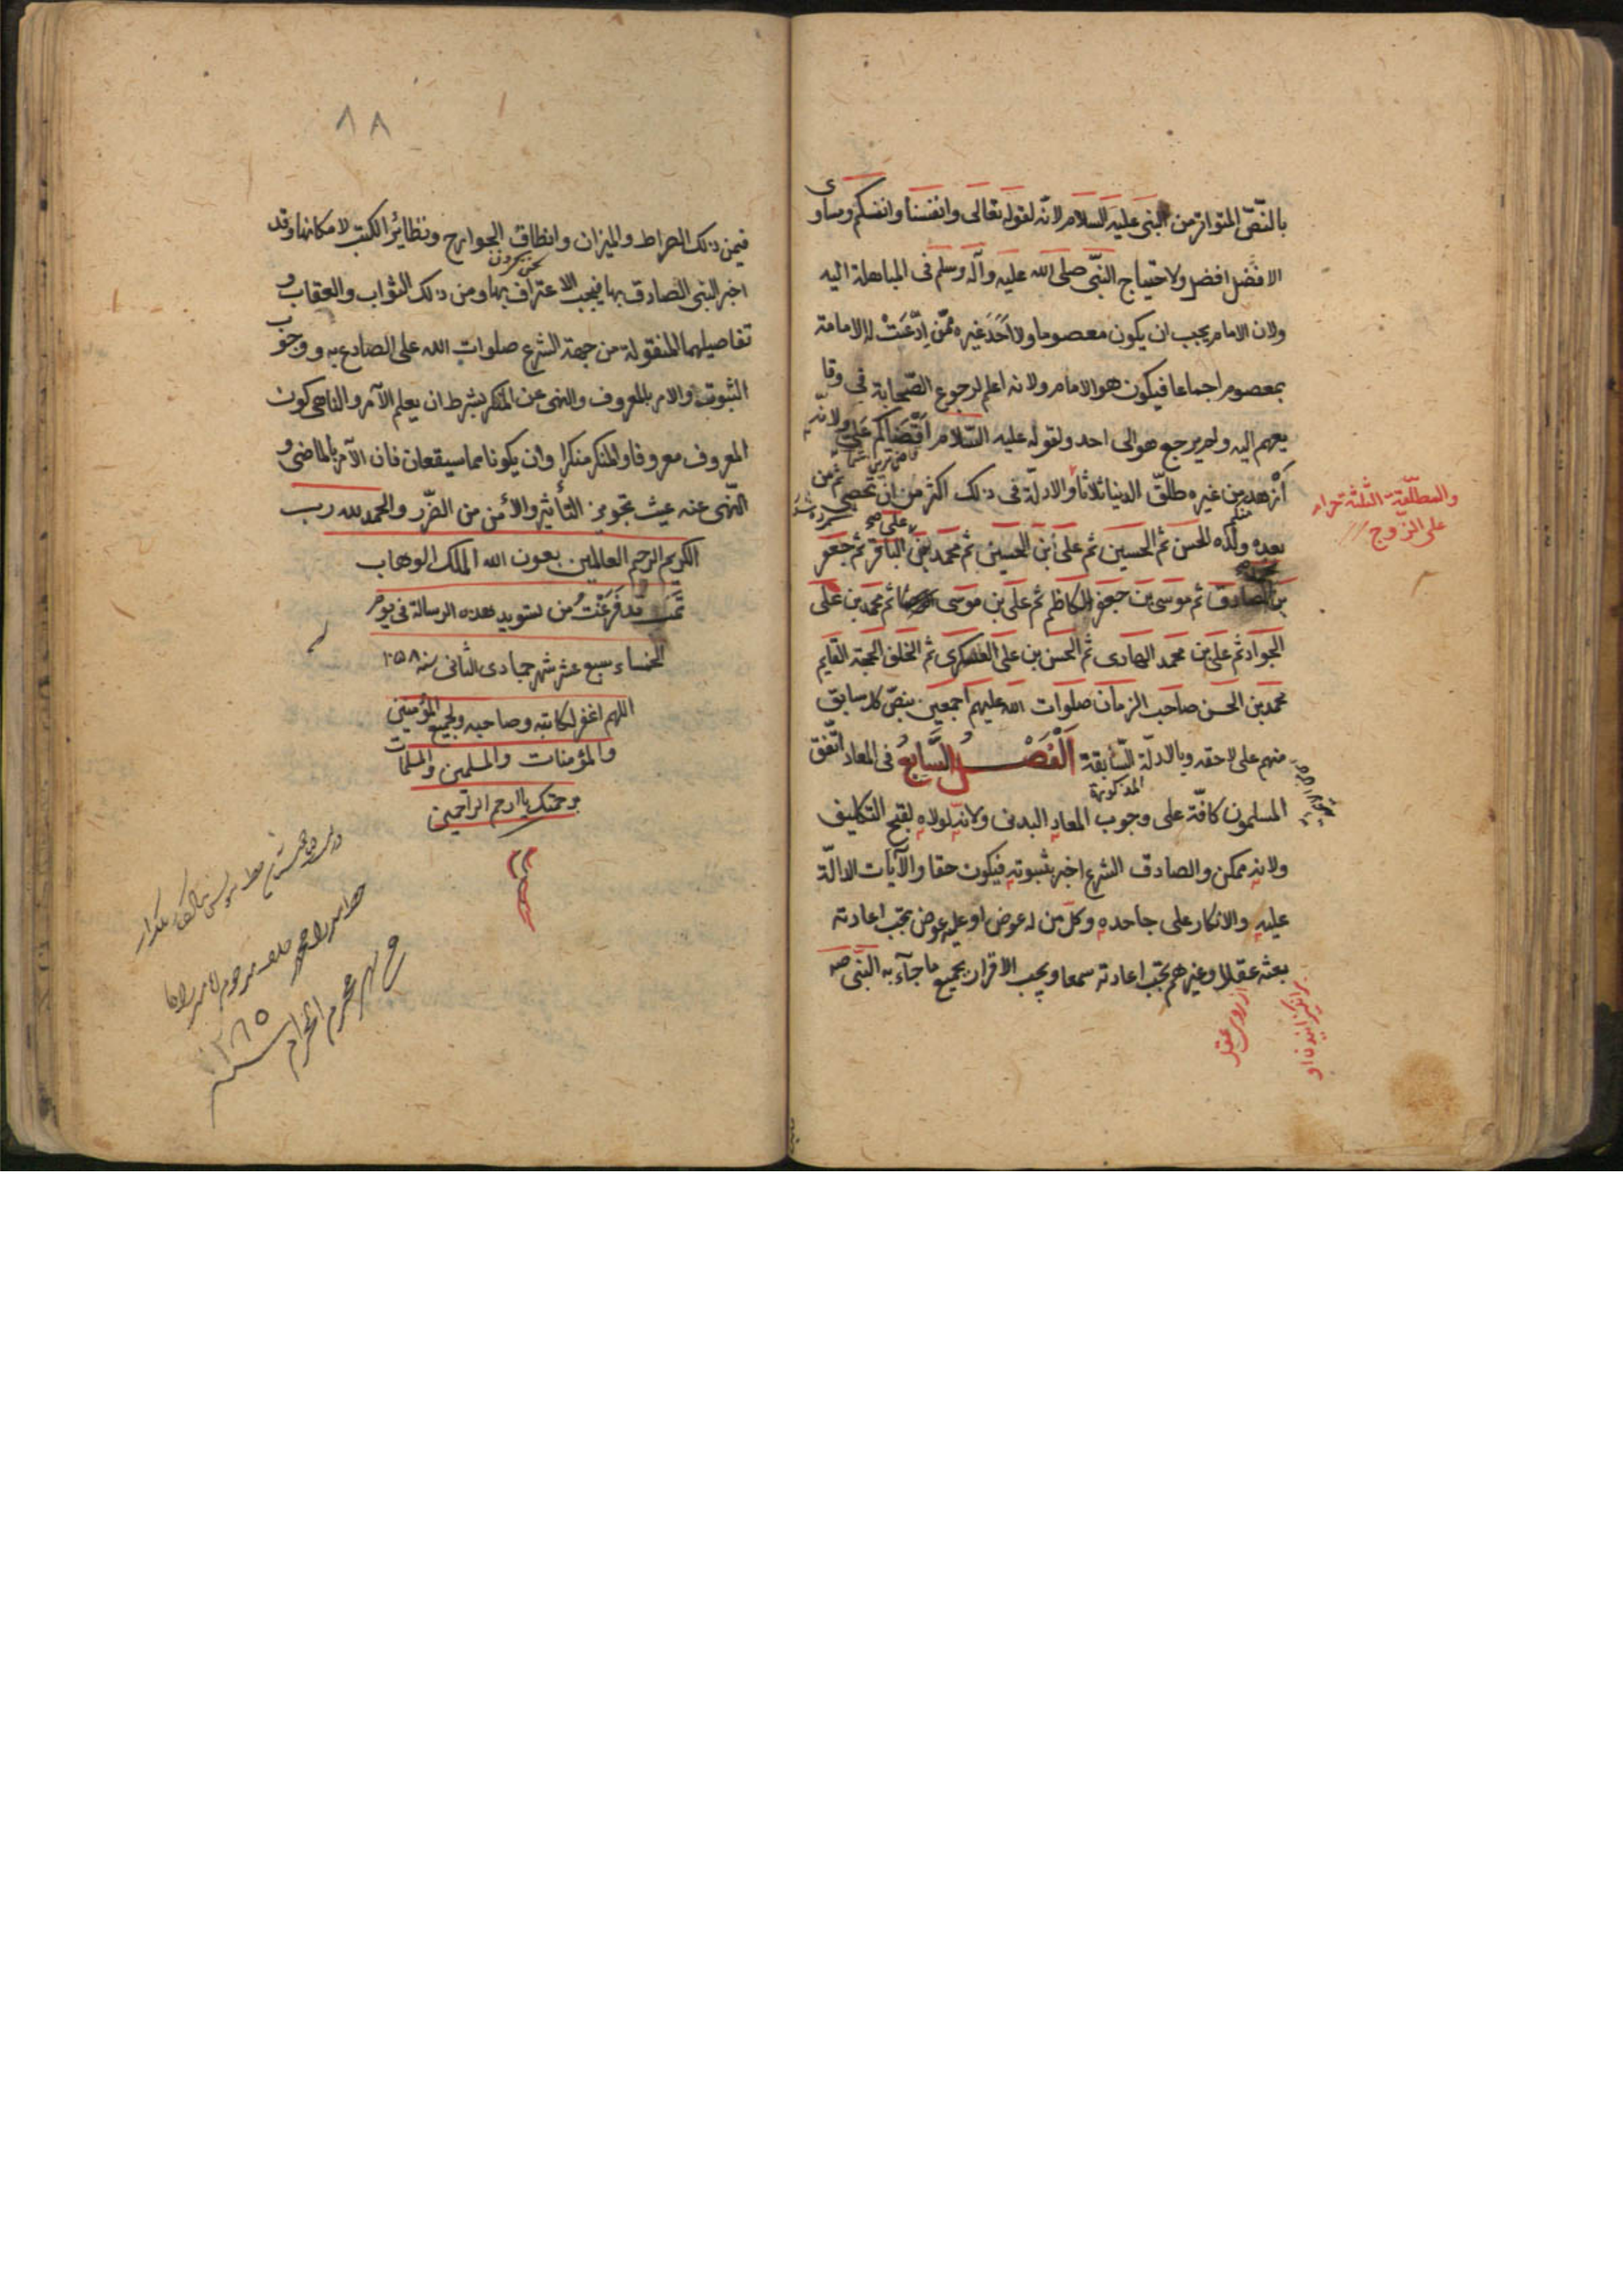 بالنّصّ المتواتر من النبى عليه السلام لانّه لقوله تعالى وانفسنا وانفسكم ومساوى
الافضل افضل ولاحتياج النّبى صلى الله عليه وآله وسلم فى المباهلة اليه
ولان الامام يجب ان يكون معصوما ولا اَحَدَ غيره ممّن اِدّعَتْ له الامامة
بمعصوم اجماعا فيكون هو الامام ولانه اعلم لرجوع الصّحابة فى وقا
يعهم اليه ولم يرجع هو الى احد ولقوله عليه السّلام اَقْضَاكم عَلِىّ ولانّه
اَزْهد من غيره طلّق الدنيا ثلاثا والادلّة فى ذلك اكثر من ان تحصى ثم من
والمطلّقة الثلثة حرام
على الزوج
بعده ولَده الحسن ثم الحسين ثم على بن الحسين ثم محمد بن على الباقر ثم جعفر
بن الصادق ثم موسى بن جعفر الكاظم ثم على بن موسى ثم محمد بن على
الجواد ثم على بن محمد الهادى ثم الحسن بن على العسكرى ثم الخلف الحجة القايم
محمد بن الحسن صاحب الزمان صلوات الله عليهم اجمعين بنصّ كل سابق
منهم على لاحقه وبالادلّة السّابقة اَلْفَصْلُ السَّابِعُ فى المعاد اتّفق
المذكورة
المسلمون كافّة على وجوب المعاد البدنى ولانه لولاه لقبح التكليف
ولانه ممكن والصادق الشرع اخبر بثبوته فيكون حقا والآيات الدالّة
عليه والانكار على جاحده وكلّ من له عوض او عليه عوض تجب اعادته
بعثه عقلا وغيرهم تجب اعادته سمعا ويجب الاقرار بجميع ما جآء به النّبى صه
از روى عقل
٨٨
فمن ذلك الصراط والميزان وانطاق الجوارح ونظائر الكتب لامكانها وقد
اخبر النبى الصادق بها فيجب الاعتراف بها ومن ذلك الثواب والعقاب و
تفاصيلهما المنقولة من جهة الشرع صلوات الله على الصادع به ووجوب
الثبوت والامر بالمعروف والنهى عن المنكر بشرط ان يعلم الآمر والناهى كون
المعروف معروفا والمنكر منكرا وان يكونا مما سيقعان فان الآمر بالماضى و
النّهى عنه عبث تجويز التأثير والأمن من الضّرر والحمد لله رب
الكريم الرحيم العالمين بعون الله الملك الوهاب
تَمَّتْ قد فَرَغْتُ من تسويد هذه الرسالة فى يوم
الخمساء سبع عشر شهر جمادى الثانى سنه ١٠٥٨
اللهم اغفر لكاتبه وصاحبه ولجميع المؤمنين
والمؤمنات والمسلمين والمسلمات
برحمتك يا ارحم الراحمين
محرم الحرام
١٢٦٥